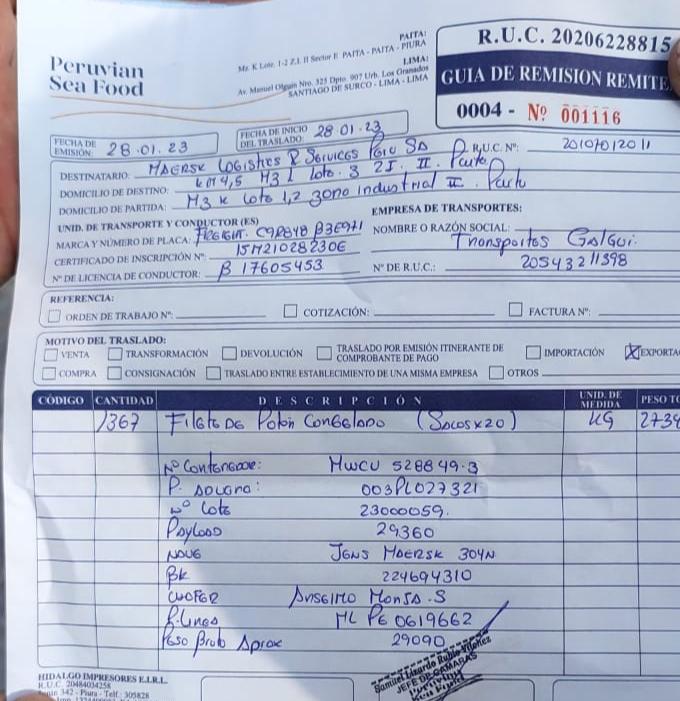 Peruvian
Sea Food
PAITA:
Mz. K Lote. 1-2 Z.I. II Sector E PAITA - PAITA - PIURA
LIMA:
Av. Manuel Olguin Nro. 325 Dpto. 907 Urb. Los Granados
SANTIAGO DE SURCO - LIMA - LIMA
R.U.C. 20206228815
GUIA DE REMISION REMITE
0004 - Nº 001116
FECHA DE EMISIÓN: 28.01.23
FECHA DE INICIO DEL TRASLADO: 28.01.23
DESTINATARIO: Maersk Logistics & Services Peru SA R.U.C. Nº: 20107012011
DOMICILIO DE DESTINO: km 4,5 M3 L Lote. 3 ZI. II. Paita
DOMICILIO DE PARTIDA: M3 K Lote 1,2 Zona Industrial II Paita
UNID. DE TRANSPORTE Y CONDUCTOR (ES)
EMPRESA DE TRANSPORTES:
MARCA Y NÚMERO DE PLACA:
NOMBRE O RAZÓN SOCIAL: Transportes Galgui.
CERTIFICADO DE INSCRIPCIÓN Nº: 15M21028230E
Nº DE LICENCIA DE CONDUCTOR: B 17605453
Nº DE R.U.C.: 20543211398
REFERENCIA:
ORDEN DE TRABAJO Nº: COTIZACIÓN: FACTURA Nº:
MOTIVO DEL TRASLADO:
VENTA TRANSFORMACIÓN DEVOLUCIÓN TRASLADO POR EMISIÓN ITINERANTE DE COMPROBANTE DE PAGO IMPORTACIÓN EXPORTA
COMPRA CONSIGNACIÓN TRASLADO ENTRE ESTABLECIMIENTO DE UNA MISMA EMPRESA OTROS
CÓDIGO CANTIDAD DESCRIPCIÓN UNID. DE MEDIDA PESO TO
1367 Filete de Potón Congelado (Sacos x 20) KG 2734
Nº Contenedor: MWCU 528849.3
P. Aduana: 003PL027321
Nº Lote 23000059.
Payload 29360
Nave Jens Maersk 304N
Bk 224694310
Chofer Anselmo Monja.S
P. Linea ML PE 0619662
Peso Bruto Aprox 29090
Samuel Lizardo Rubio Vilchez
JEFE DE CAMARAS
Peruvian
Sea Food
HIDALGO IMPRESORES E.I.R.L.
R.U.C. 20484034258
Junin 342 - Piura - Telf.: 305828